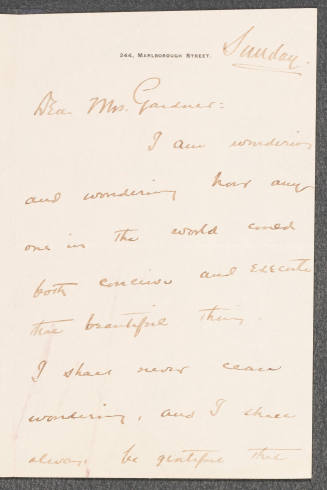 244, Marlborough Street.
Sunday.
Dear Mrs. Gardner:
I am wondering
and wondering how any
one in the world could
both conceive and execute
that beautiful thing.
I shall never cease
wondering, and I shall
always be grateful that